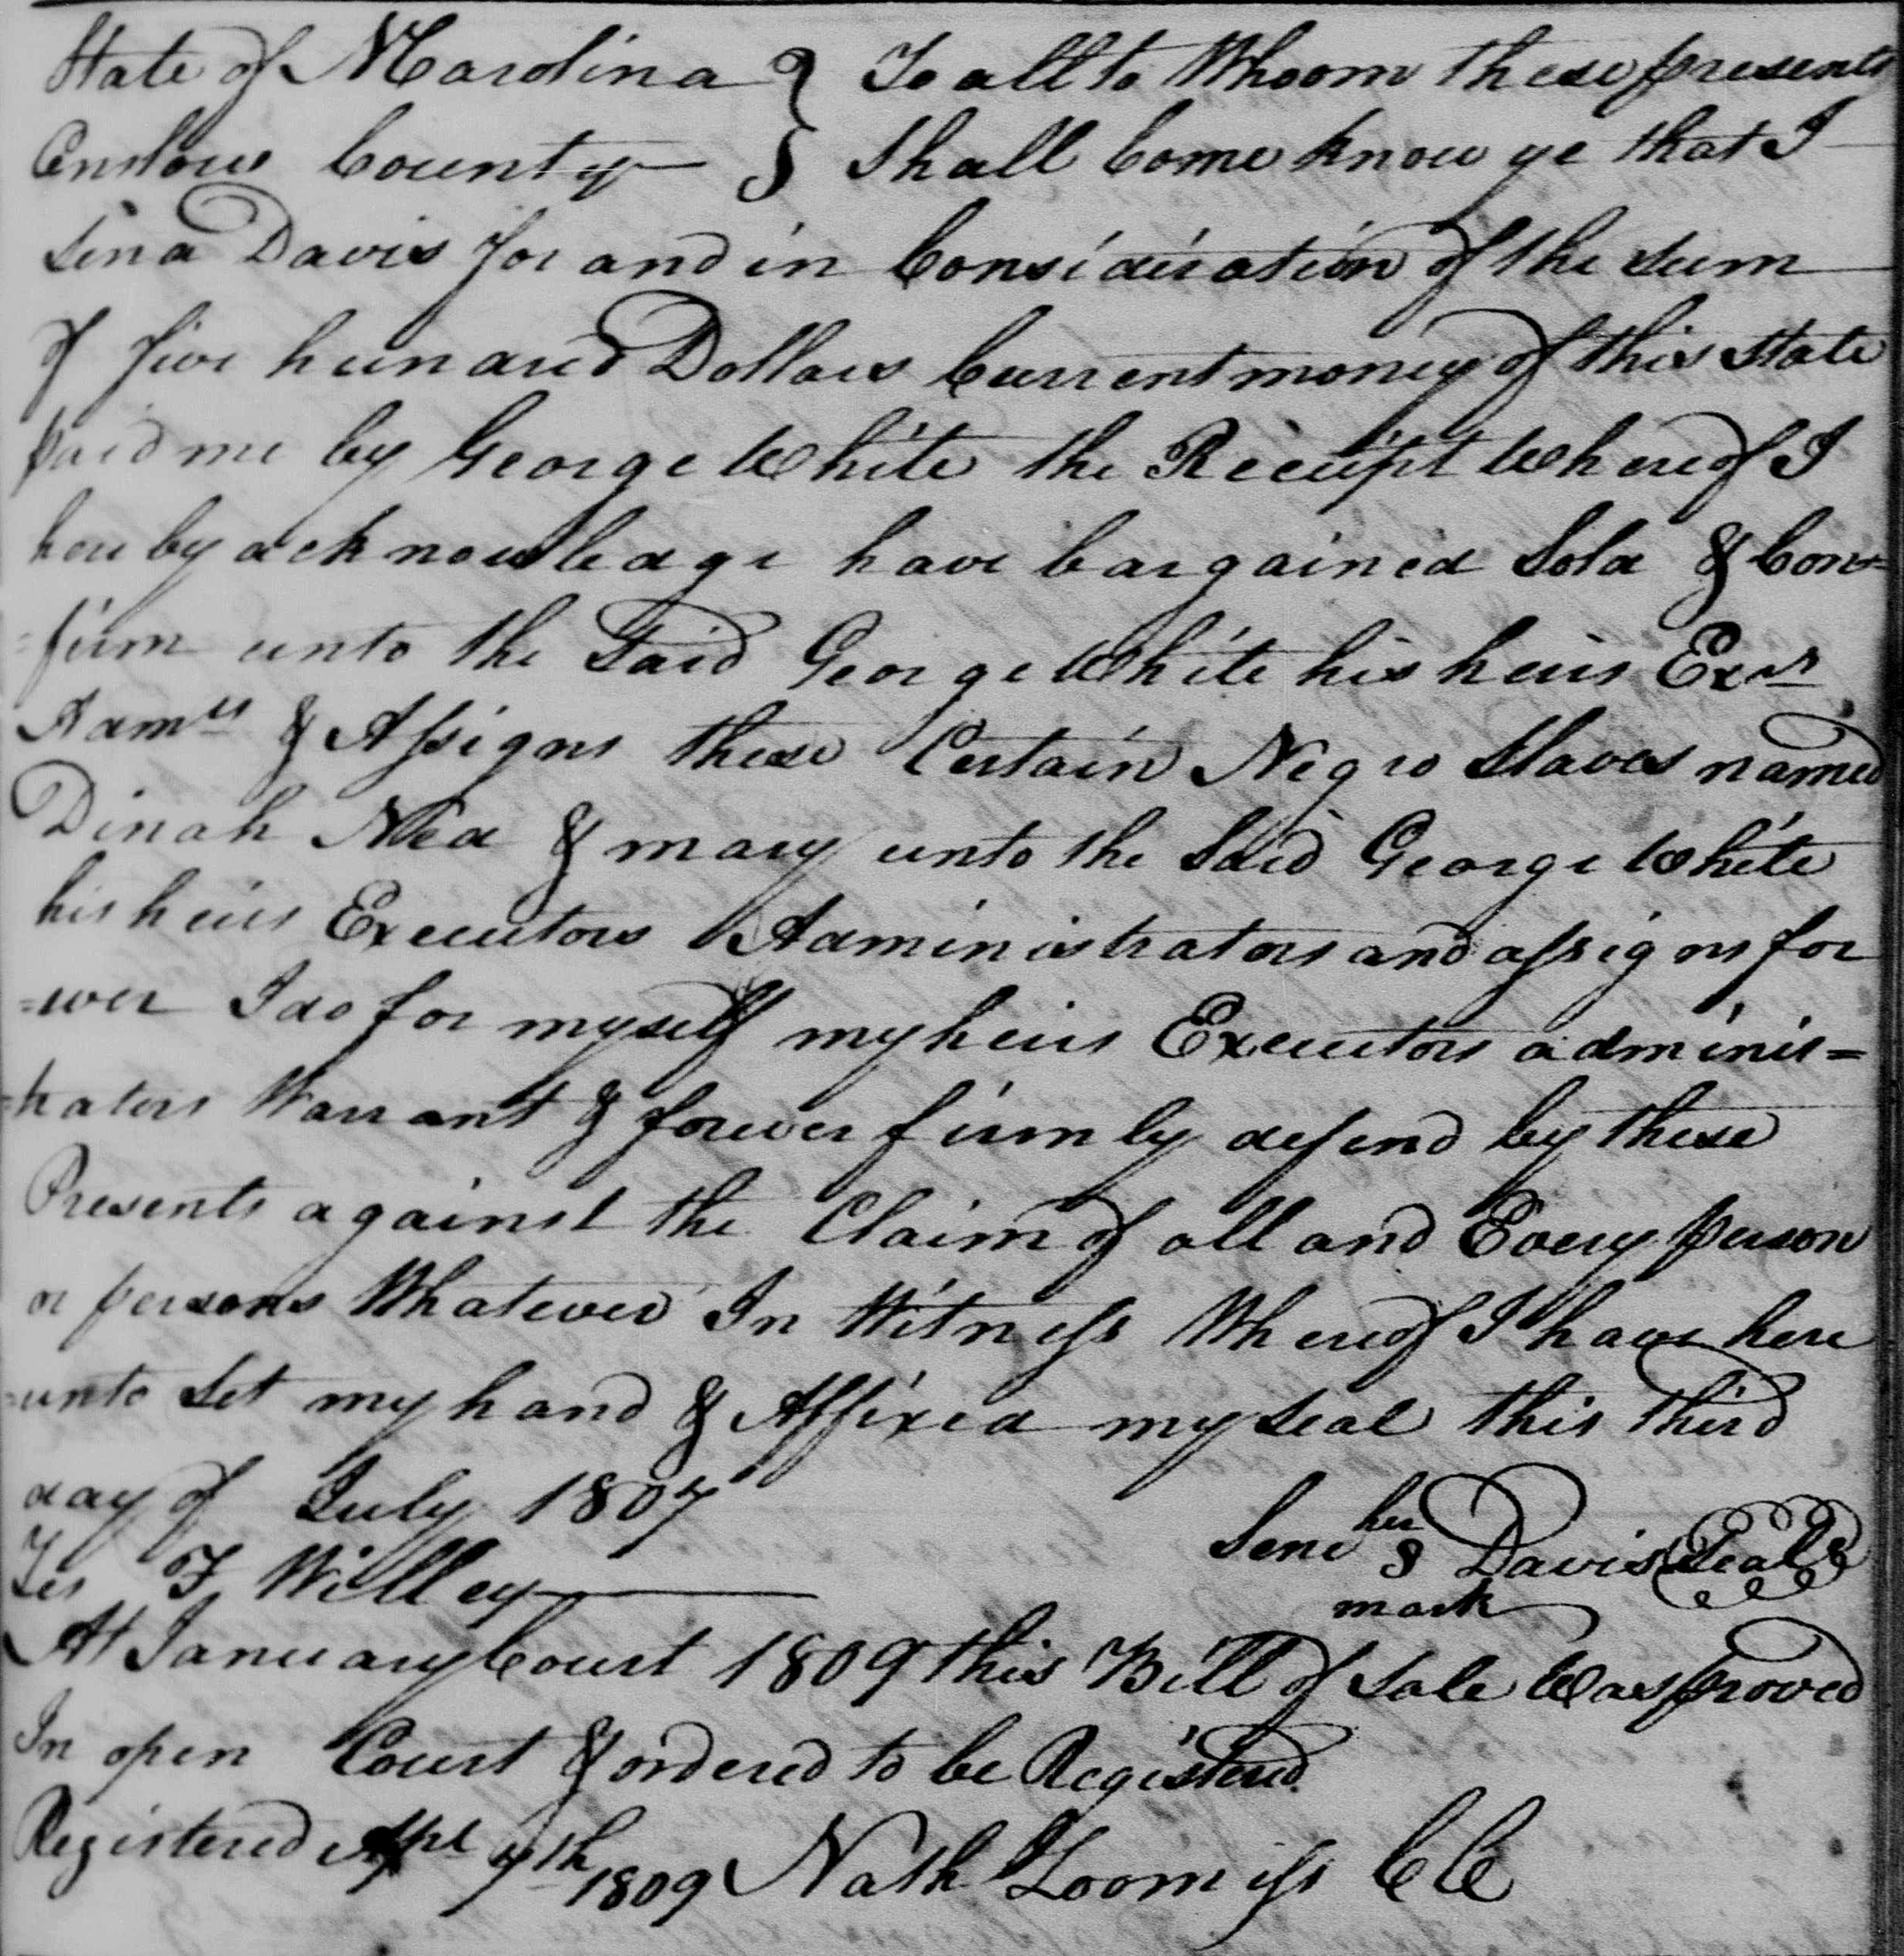 State of N Carolina } To all to Whoom these presents
Onslow County } Shall Come know ye that I
Sena Davis for and in Consideration of the Sum
of five hundred Dollars Current money of this State
paid me by George White the Receipt Whereof I
hereby acknowledge have bargained Sold & Con=
=firm unto the Said George White his heirs Exrs
Admrs & Assigns these Certain Negro Slaves named
Dinah Ned & mary unto the Said George White
his heirs Executors Administrators and assigns for
=ever I do for myself my heirs Executors adminis=
=trators Warrant & forever firmly defend by these
Presents against the Claim of all and Every person
or persons Whatever In Witness Whereof I have here
=unto Set my hand & Affixed my Seal this third
day of July 1807
Sene her 8 mark Davis Seal
Tes F Willey
At January Court 1809 this Bill of Sale Was proved
In open Court & ordered to be Registered
Registered Apl 7th 1809 Nath Loomiss CC